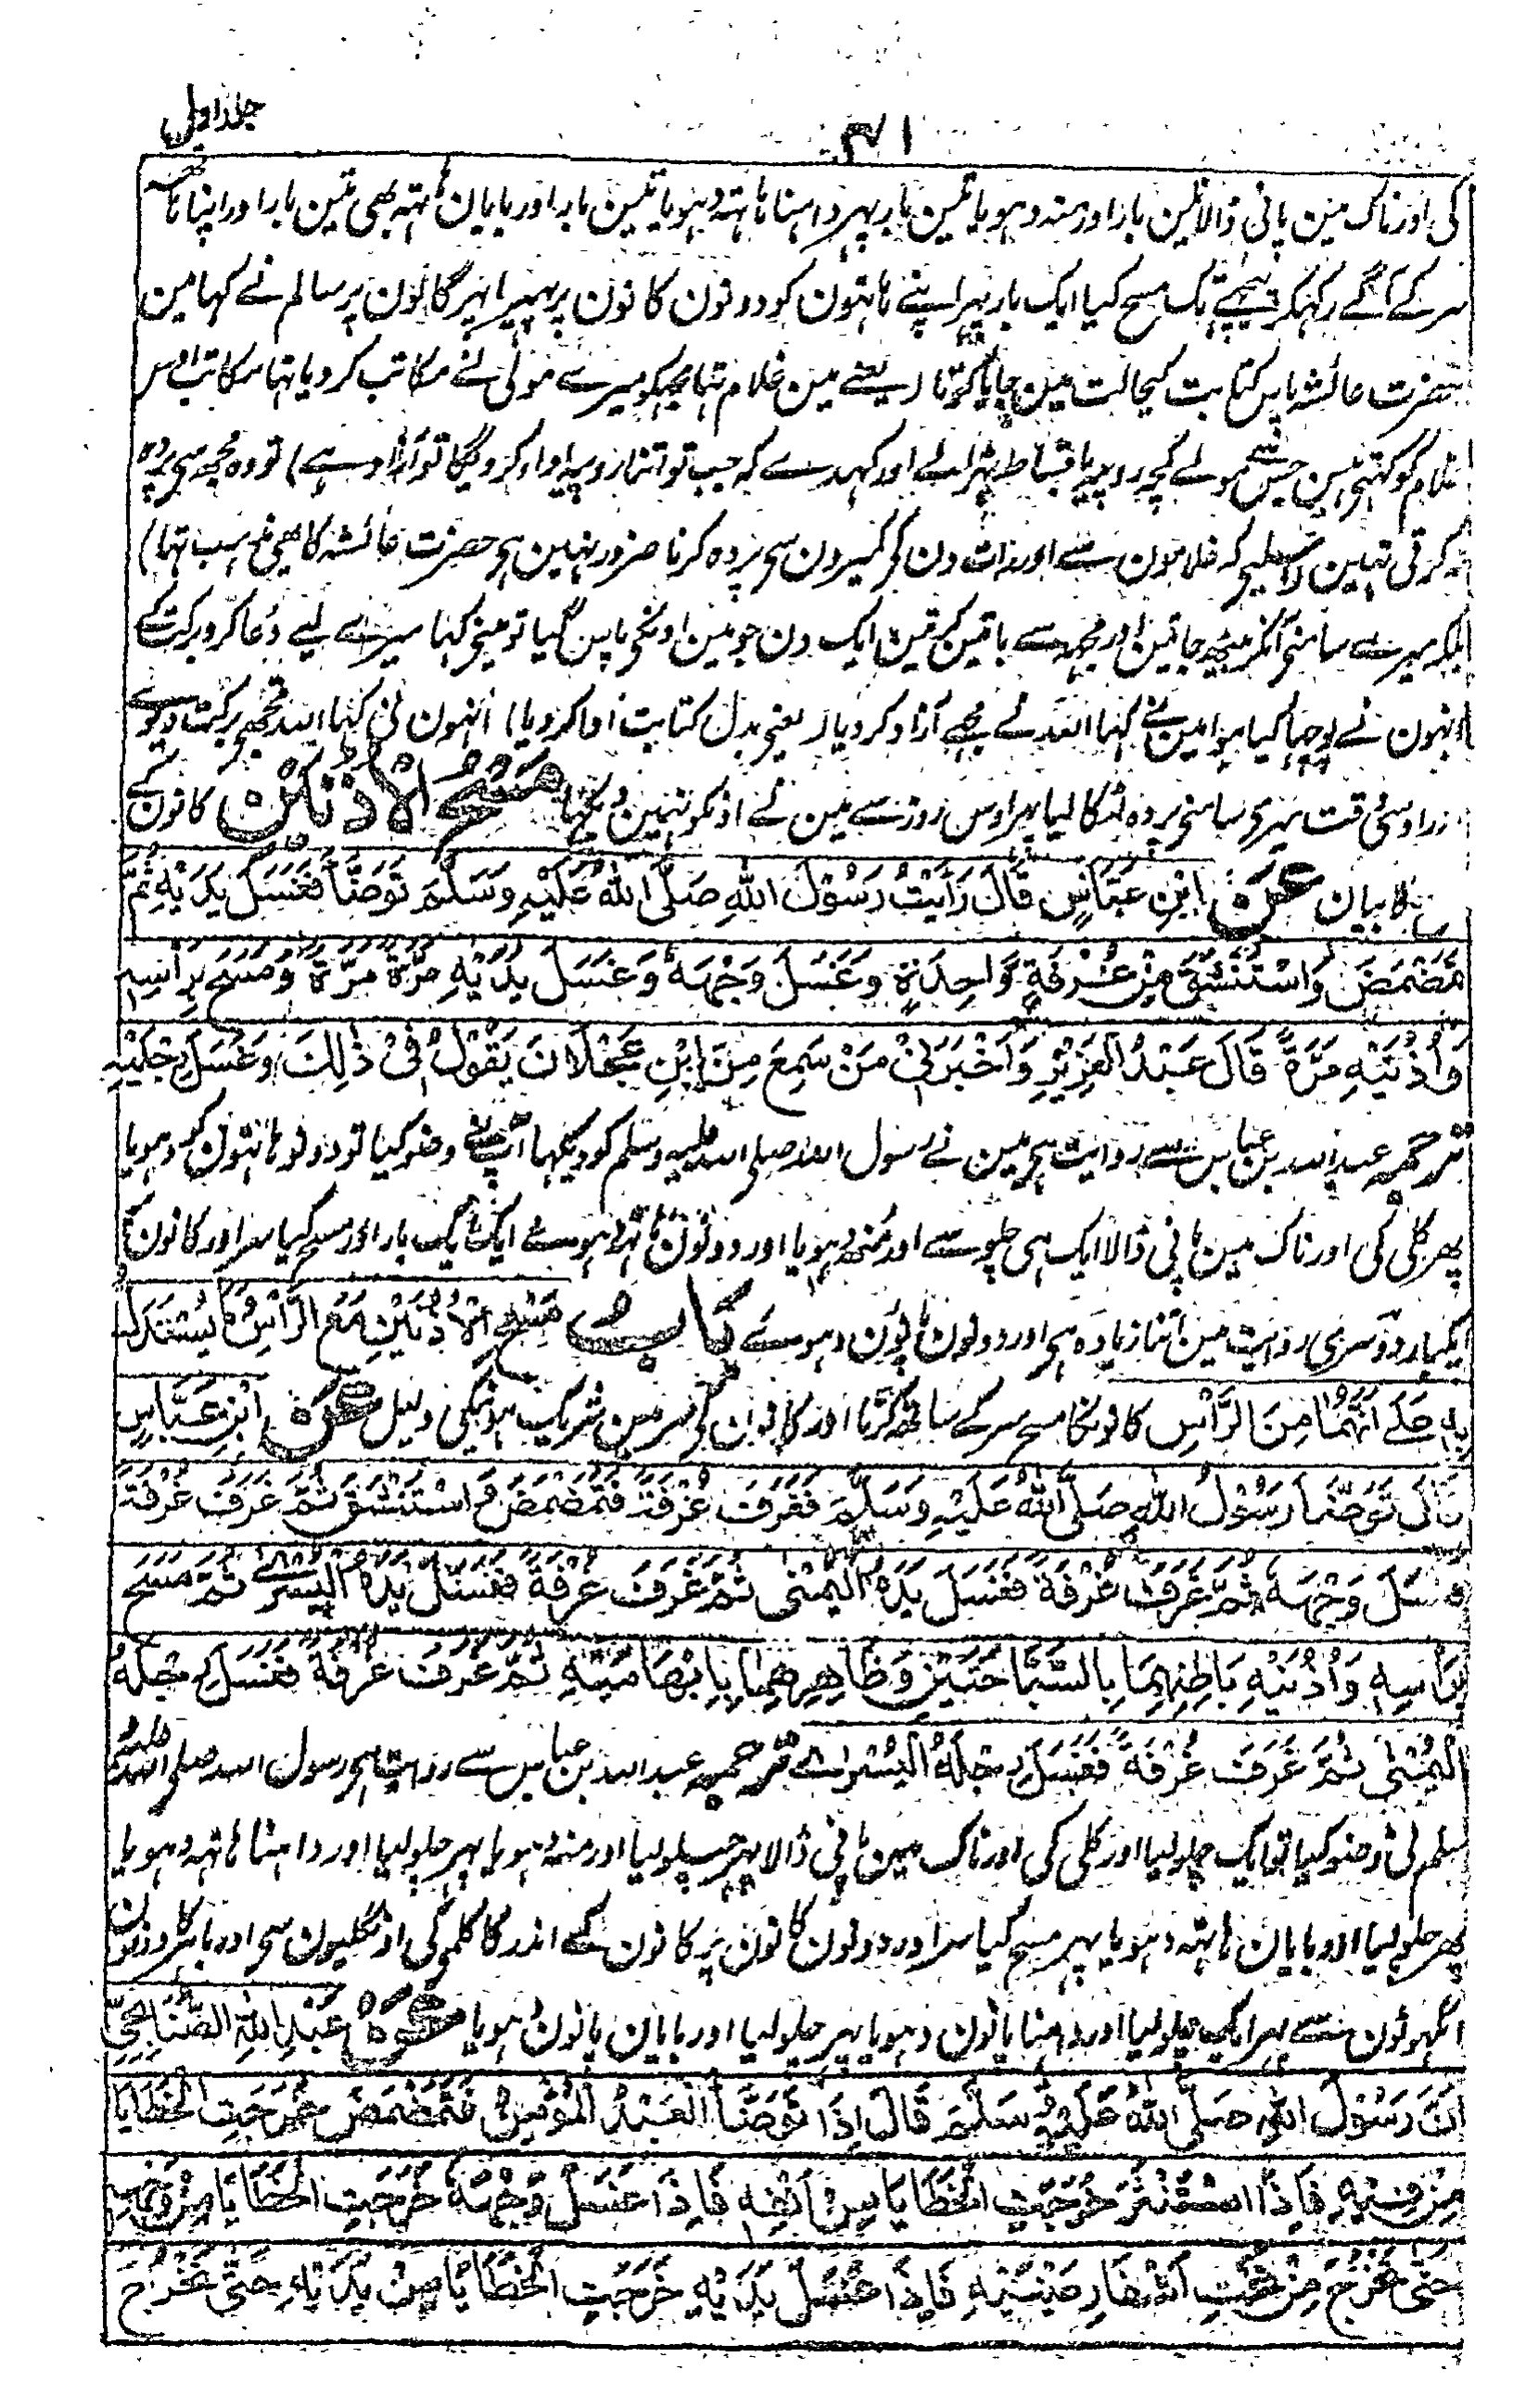 جلد اول
۴۱
کی اور ناک مین پانی ڈالا تین بار اور منہ دہویا تین بار پہر داہنا ہاتہ دہویا تین بار اور بایان ہاتہ بھی تین بار اور اپنا ہاتھ
سر کے آگے رکہکر پیچھے تک مسح کیا ایک بار پہر اپنے ہاتہون کو دونون کانون پر پہیرا پہر گالون پر سالم نے کہا مین
حضرت عائشہ پاس کتابت کیحالت مین جایا کرتا (یعنے مین غلام تہا مجہکو میرے مولی نے مکاتب کر دیا تہا مکاتب اوس
غلام کو کہتے ہین جس سے مولے کچہ روپیہ باقساط ٹہرالے اور کہدے کہ جب تو اتنا روپیہ ادا کرویگا تو آزاد ہے) تو وہ مجہ سے پردہ
نہ کرتی تہین (اسلیے کہ غلامون سے اور رات دن کے کمیرون سے پردہ کرنا ضرور نہین ہے حضرت عائشہ کا یہی مذہب تہا)
بلکہ میرے سامنے آنکر بیٹھ جاتین اور مجہ سے باتین کرتین ایک دن جو مین اونکے پاس گیا تو مینے کہا میرے لیے دعا کرو برکت کے
انہون نے پوچہا کیا ہوا مین نے کہا اللہ نے مجہے آزاد کر دیا (یعنے بدل کتابت ادا کر دیا) انہون نے کہا اللہ تجھے برکت دیوے
اور اوسی وقت میرے سامنے پردہ لٹکا لیا پہر اوس روز سے مین نے اونکو نہین دیکہا مَسْحُ الْاُذُنَيْنِ کانون کے
مسح کا بیان عَنِ ابْنِ عَبَّاسٍ قَالَ رَاَيْتُ رَسُوْلَ اللّٰهِ صَلَّى اللّٰهُ عَلَيْهِ وَسَلَّمَ تَوَضَّاَ فَغَسَلَ يَدَيْهِ ثُمَّ
مَضْمَضَ وَاسْتَنْشَقَ مِنْ غُرْفَةٍ وَاحِدَةٍ وَغَسَلَ وَجْهَهٗ وَغَسَلَ يَدَيْهِ مَرَّةً مَرَّةً وَمَسَحَ بِرَاْسِهٖ
وَاُذُنَيْهِ مَرَّةً قَالَ عَبْدُ الْعَزِيْزِ وَاَخْبَرَنِيْ مَنْ سَمِعَ مِنَ ابْنِ عَجْلَانَ يَقُوْلُ فِيْ ذٰلِكَ وَغَسَلَ رِجْلَيْهِ
ترجمہ عبداللہ بن عباس سے روایت ہے مین نے رسول اللہ صلی اللہ علیہ وسلم کو دیکہا آپنے وضو کیا تو دونو ہاتہون کو دہویا
پھر کلی کی اور ناک مین پانی ڈالا ایک ہی چلو سے اور منھ دہویا اور دونون ہاتہ دہوے ایک ایک بار اور مسح کیا سر اور کانون کا
ایکبار دوسری روایت مین اتنا زیادہ ہے اور دونون پانون دہوے بَابُ مَسْحِ الْاُذُنَيْنِ مَعَ الرَّاْسِ وَمَا يُسْتَدَلُّ
بِهٖ عَلٰى اَنَّهُمَا مِنَ الرَّاْسِ کانونکا مسح سر کے ساتھ کرنا اور کانون کے سر مین شریک ہونیکی دلیل عَنِ ابْنِ عَبَّاسٍ
قَالَ تَوَضَّاَ رَسُوْلُ اللّٰهِ صَلَّى اللّٰهُ عَلَيْهِ وَسَلَّمَ فَغَرَفَ غُرْفَةً فَتَمَضْمَضَ وَاسْتَنْشَقَ ثُمَّ غَرَفَ غُرْفَةً
فَغَسَلَ وَجْهَهٗ ثُمَّ غَرَفَ غُرْفَةً فَغَسَلَ يَدَهُ الْيُمْنٰى ثُمَّ غَرَفَ غُرْفَةً فَغَسَلَ يَدَهُ الْيُسْرٰى ثُمَّ مَسَحَ
بِرَاْسِهٖ وَاُذُنَيْهِ بَاطِنِهِمَا بِالسَّبَّاحَتَيْنِ وَظَاهِرِهِمَا بِاِبْهَامَيْهِ ثُمَّ غَرَفَ غُرْفَةً فَغَسَلَ رِجْلَهُ
الْيُمْنٰى ثُمَّ غَرَفَ غُرْفَةً فَغَسَلَ رِجْلَهُ الْيُسْرٰى ترجمہ عبداللہ بن عباس سے روایت ہے رسول اللہ صلی اللہ علیہ
وسلم نے وضو کیا تو ایک چلو لیا اور کلی کی اور ناک مین پانی ڈالا پہر چلو لیا اور منہ دہویا پہر چلو لیا اور داہنا ہاتہ دہویا
پھر چلو لیا اور بایان ہاتہ دہویا پہر مسح کیا سر اور دونون کانون پر کانون کے اندر کا کلمے کی اونگلیون سے اور باہر کا دونون
انگہوٹون سے پہر ایک چلو لیا اور داہنا پانون دہویا پہر چلو لیا اور بایان پانون دہویا عَنْ عَبْدِ اللّٰهِ الصُّنَابِحِيِّ
اَنَّ رَسُوْلَ اللّٰهِ صَلَّى اللّٰهُ عَلَيْهِ وَسَلَّمَ قَالَ اِذَا تَوَضَّاَ الْعَبْدُ الْمُؤْمِنُ فَتَمَضْمَضَ خَرَجَتِ الْخَطَايَا
مِنْ فِيْهِ فَاِذَا اسْتَنْثَرَ خَرَجَتِ الْخَطَايَا مِنْ اَنْفِهٖ فَاِذَا غَسَلَ وَجْهَهٗ خَرَجَتِ الْخَطَايَا مِنْ وَجْهِهٖ
حَتّٰى تَخْرُجَ مِنْ تَحْتِ اَشْفَارِ عَيْنَيْهِ فَاِذَا غَسَلَ يَدَيْهِ خَرَجَتِ الْخَطَايَا مِنْ يَدَيْهِ حَتّٰى تَخْرُجَ